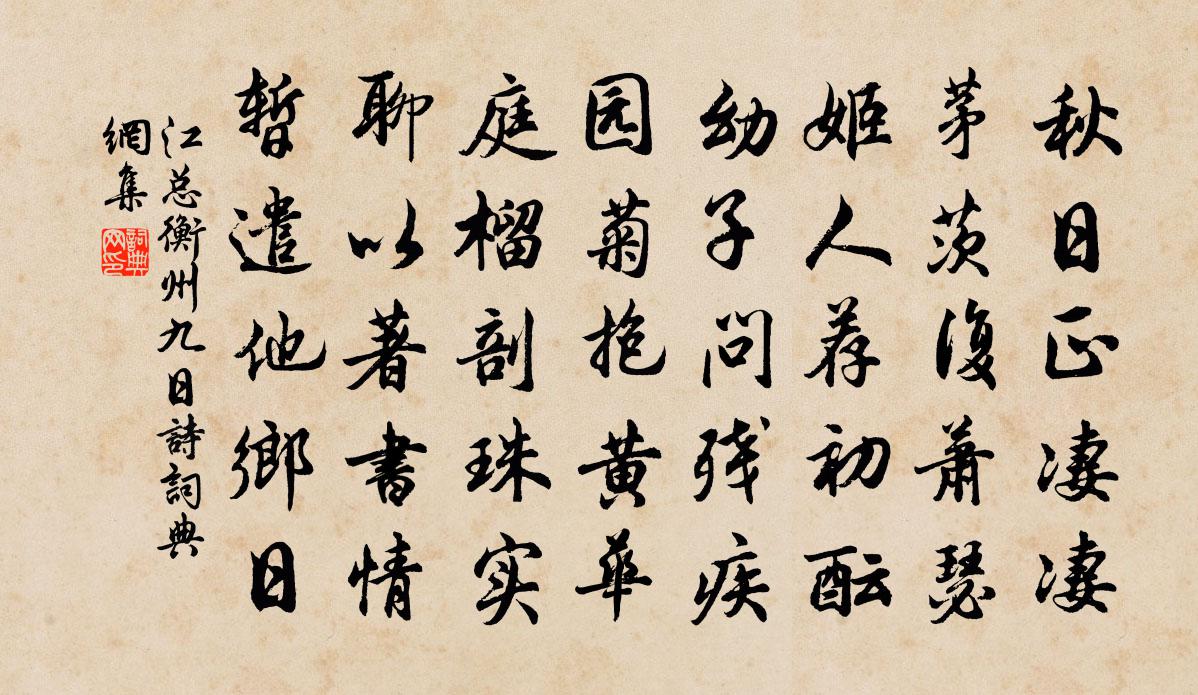 秋日正凄凄
茅茨復蕭瑟
姬人荐初酝
幼子问残疾
园菊抱黄華
庭榴剖珠实
聊以著書情
暫遣他鄉日
江总衡州九日詩詞典
網集
詞典
网印